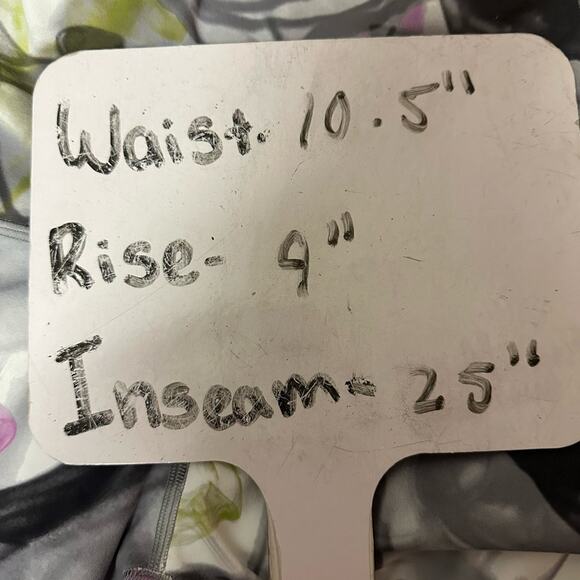 Waist. 10.5"
Rise- 9"
Inseam- 25"